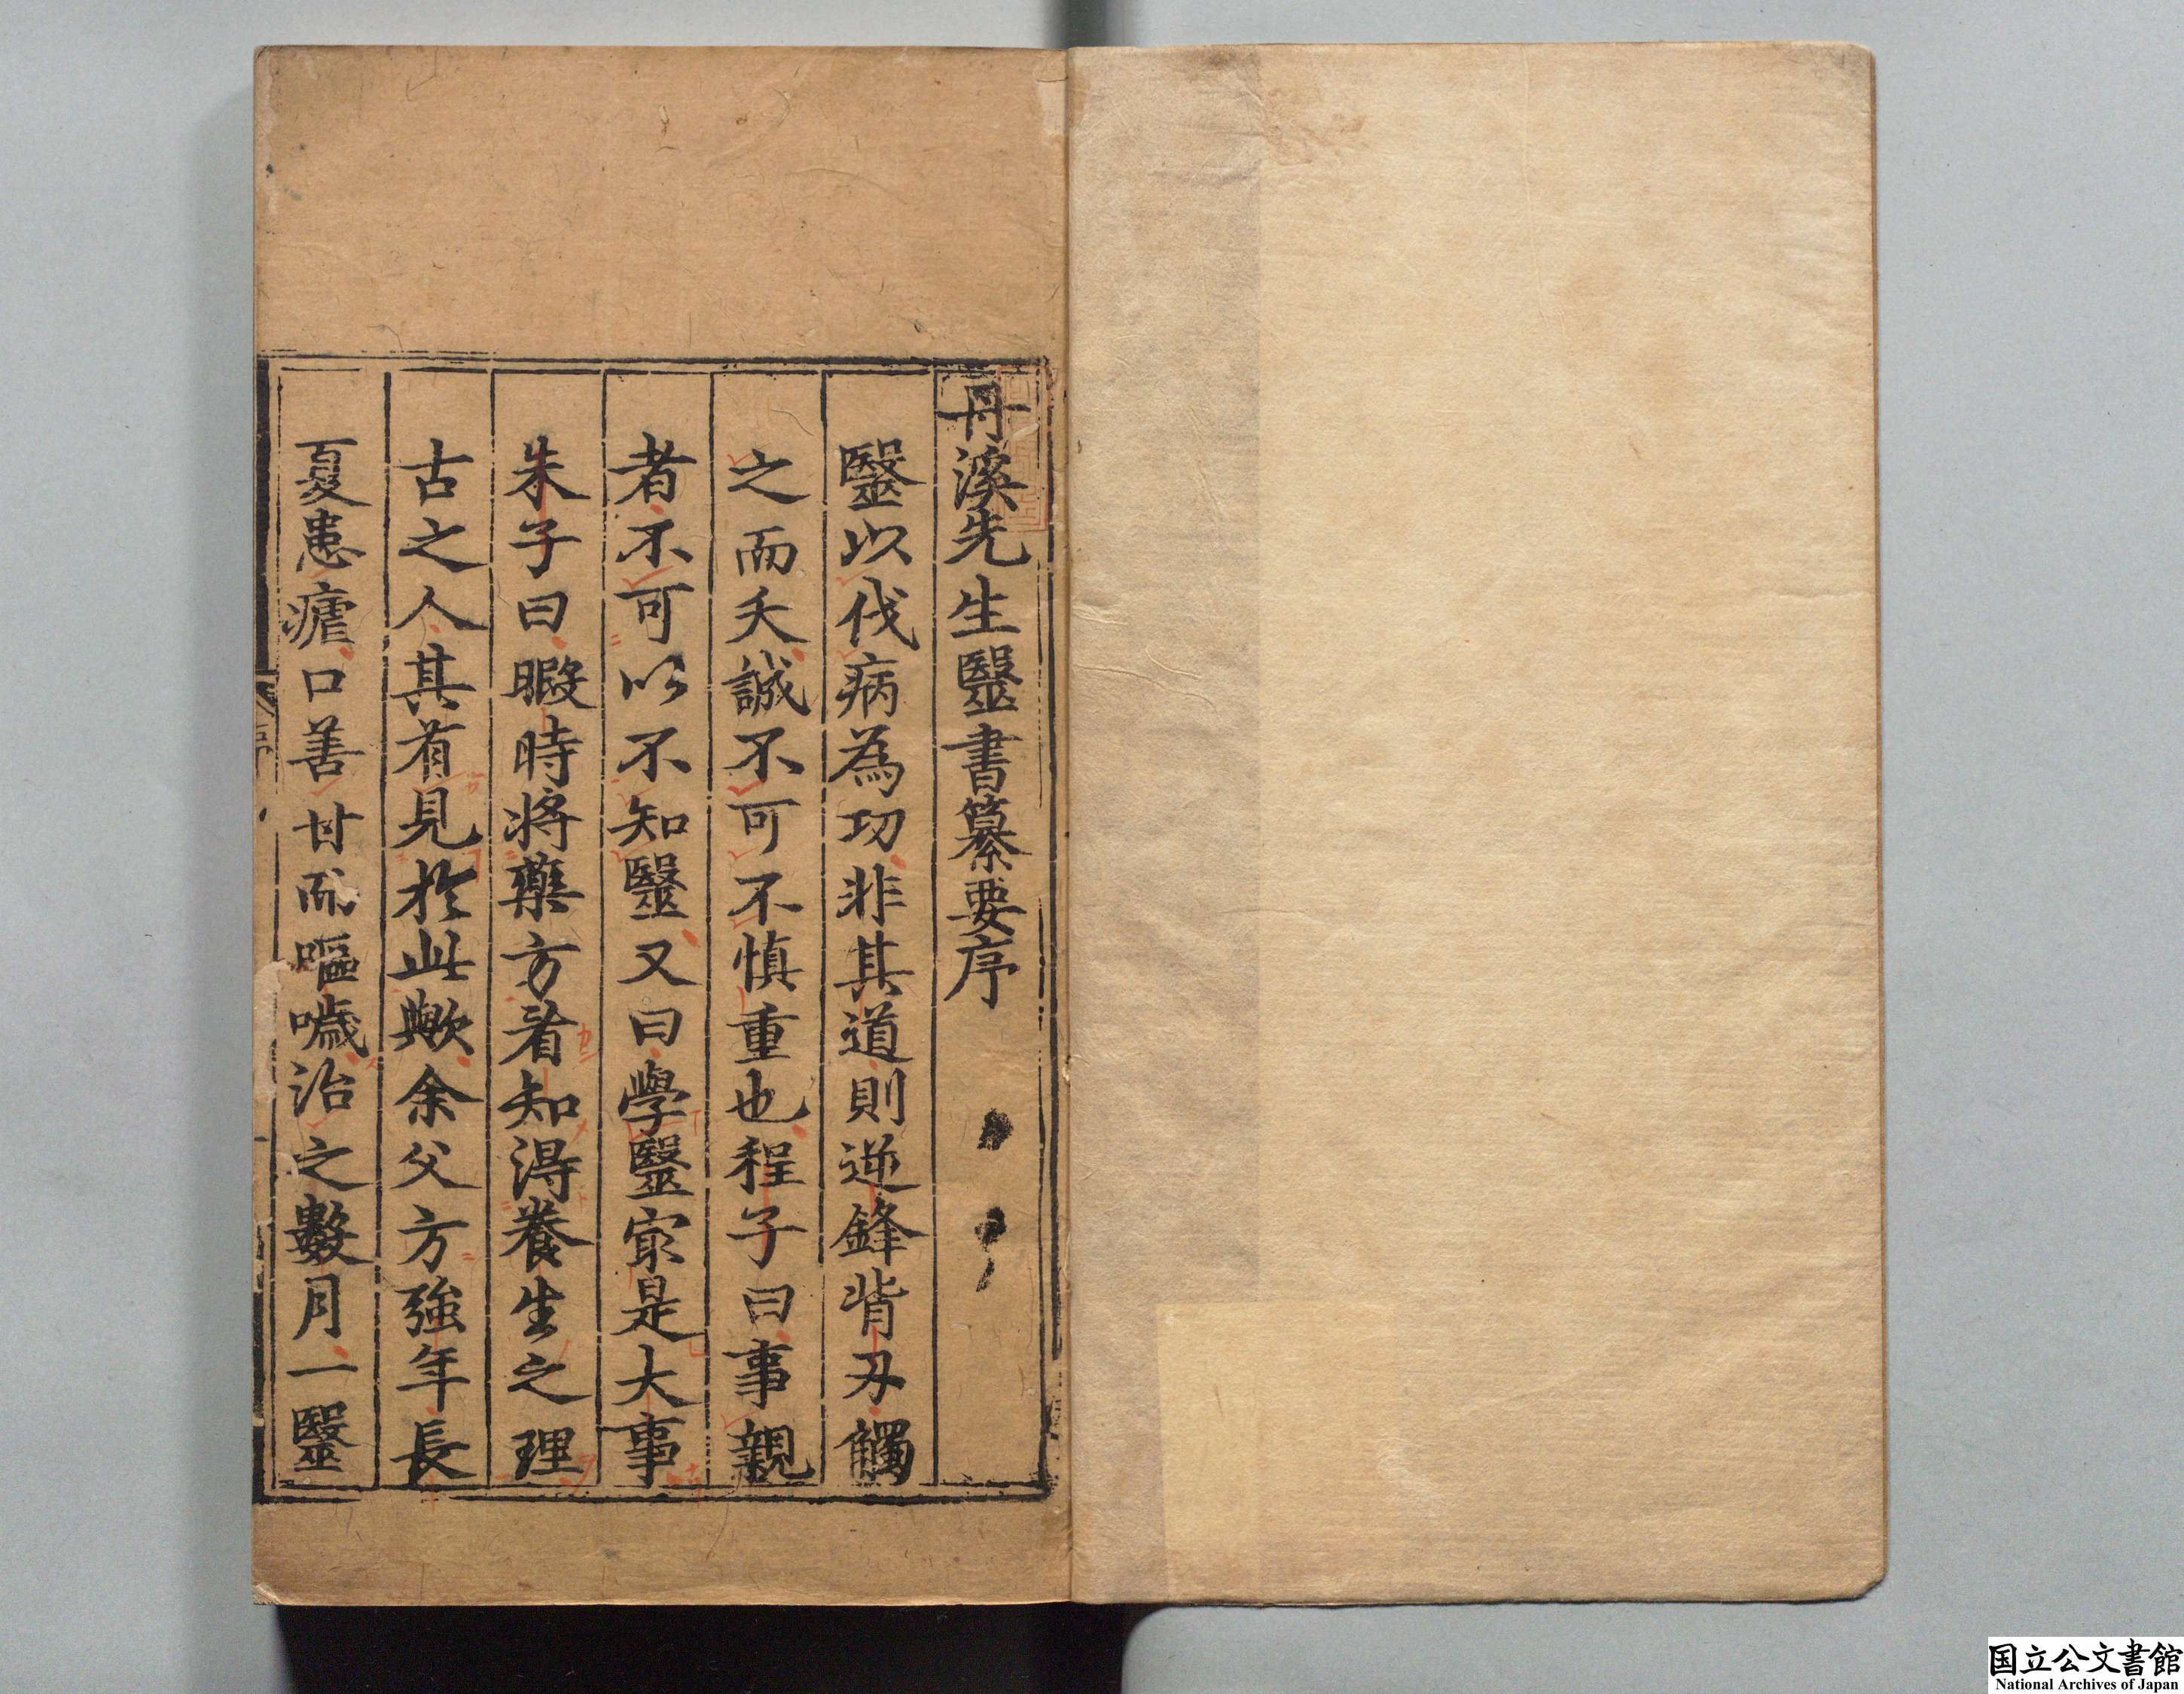 丹溪先生醫書纂要序
醫以伐病為功非其道則逆鋒背刃觸
之而夭誠不可不慎重也程子曰事親
者不可以不知醫又曰學醫㝡是大事
朱子曰暇時將藥方看知得養生之理
古之人其有見於此歟余父方強年長
夏患瘧口善甘而嘔噦治之數月一醫
国立公文書館
National Archives of Japan